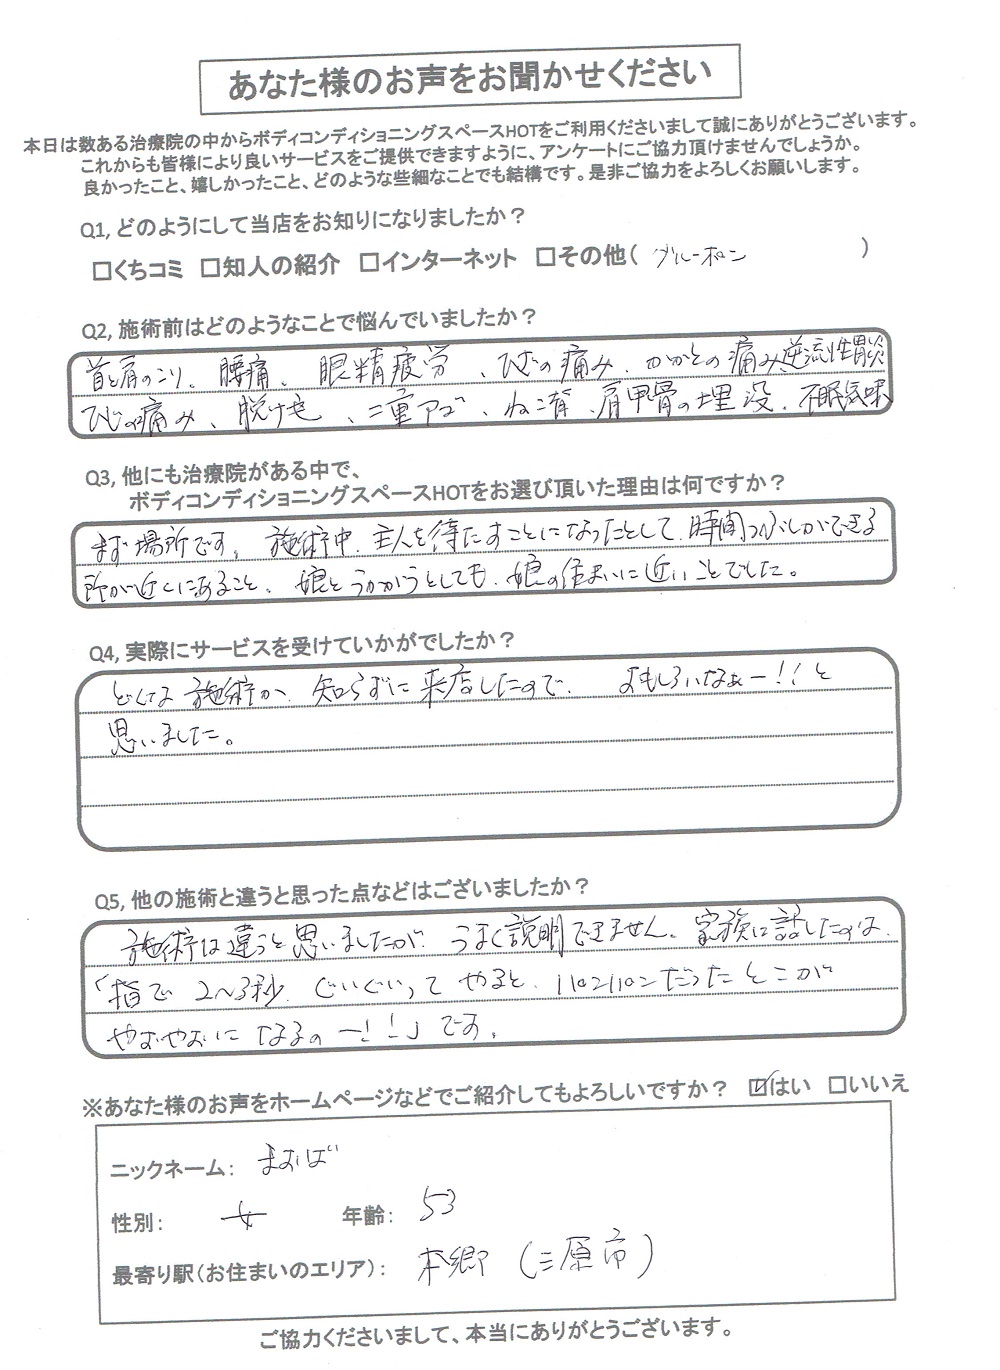 あなた様のお声をお聞かせください
本日は数ある治療院の中からボディコンディショニングスペースHOTをご利用くださいまして誠にありがとうございます。
これからも皆様により良いサービスをご提供できますように、アンケートにご協力頂けませんでしょうか。
良かったこと、嬉しかったこと、どのような些細なことでも結構です。是非ご協力をよろしくお願いします。
Q1, どのようにして当店をお知りになりましたか？
□くちコミ □知人の紹介 □インターネット □その他( グルーポン )
Q2, 施術前はどのようなことで悩んでいましたか？
首と肩のこり、腰痛、眼精疲労、ひざの痛み、かかとの痛み 逆流性胃炎
ひじの痛み、脱け毛、二重アゴ、ねこ背、肩甲骨の埋没、不眠気味
Q3, 他にも治療院がある中で、
ボディコンディショニングスペースHOTをお選び頂いた理由は何ですか？
まず場所です。施術中、主人を待たすことになったとして、時間つぶしができる
所が近くにあること、娘とうかがうとしても、娘の住まいに近いことでした。
Q4, 実際にサービスを受けていかがでしたか？
どんな施術か、知らずに来店したので、おもしろいなぁー!!と
思いました。
Q5, 他の施術と違うと思った点などはございましたか？
施術は違うと思いましたが、うまく説明できません。家族に話したのは、
「指で 2～3秒、ぐいぐいって やると、パンパンだったとこが
やわやわに なるのー!!」です。
※あなた様のお声をホームページなどでご紹介してもよろしいですか？ ☑はい □いいえ
ニックネーム: まおばい
性別: 女 年齢: 53
最寄り駅(お住まいのエリア): 本郷 (三原市)
ご協力くださいまして、本当にありがとうございます。